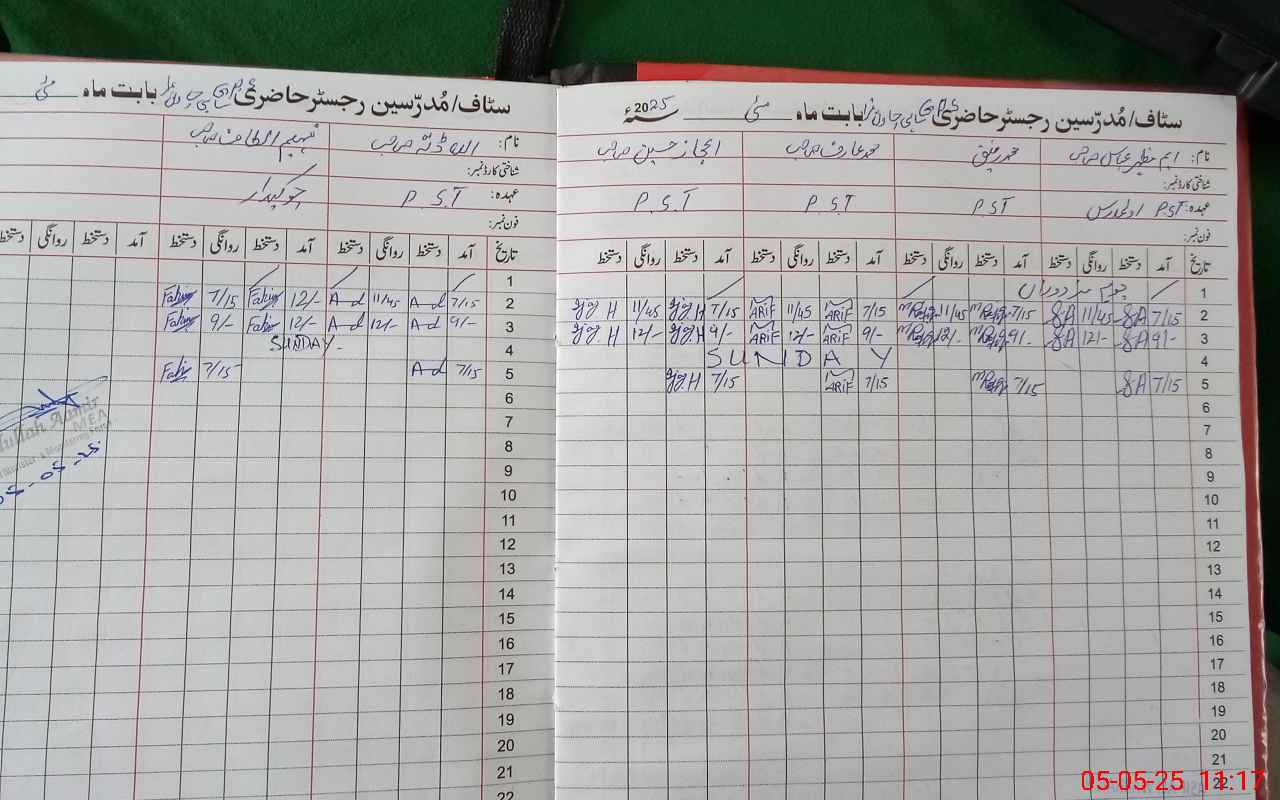 سٹاف/مُدرّسین رجسٹر حاضری GPS بابت ماہ مئی 2025ء
نام: ایم مظہر عباس صاحب محمد رفیق محمد عارف صاحب اعجاز حسین صاحب
شناختی کارڈ نمبر:
عہدہ: P.S.T P.S.T P.S.T P.S.T
فون نمبر:
تاریخ آمد دستخط روانگی دستخط آمد دستخط روانگی دستخط آمد دستخط روانگی دستخط آمد دستخط روانگی دستخط
1
2 7/15 SA 11/45 SA 7/15 11/45 7/15 ARIF 11/45 ARIF 7/15 H 11/45 H
3 9/- SA 12/- SA 9/- 12/- 9/- ARIF 12/- ARIF 9/- H 12/- H
4 SUNDAY
5 7/15 SA 7/15 7/15 ARIF 7/15 H
6
7
8
9
10
11
12
13
14
15
16
17
18
19
20
21
22
سٹاف/مُدرّسین رجسٹر حاضری GPS بابت ماہ مئی
نام: اللہ ڈتہ صاحب فہیم الطاف صاحب
شناختی کارڈ نمبر:
عہدہ: P.S.T چوکیدار
فون نمبر:
تاریخ آمد دستخط روانگی دستخط آمد دستخط روانگی دستخط آمد دستخط روانگی دستخط
1
2 7/15 A-d 11/45 A-d 12/- Fahim 7/15 Fahim
3 9/- A-d 12/- A-d 12/- Fahim 9/- Fahim
4 SUNDAY
5 7/15 A-d 7/15 Fahim
6
7
8
9
10
11
12
13
14
15
16
17
18
19
20
21
22
ullah Aamir
MEA
05-05-25
05-05-25 11:17